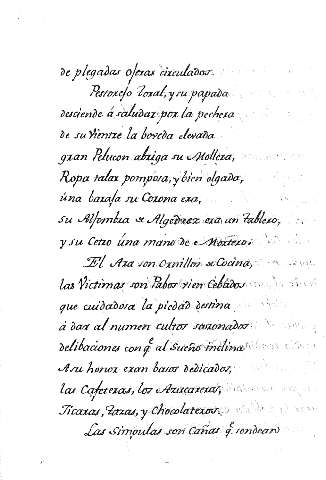 de plegadas oseras circulados.
Pestorejo Toral, y su papada
desciende á saludar por la pechera
de su vientre la boveda elevada
gran Pelucon abriga su Mollera,
Ropa talar pomposa, y bien olgada,
úna baraja su Corona era,
su Alfombra de Algedrez era un tablero,
y su Cetro úna mano de Mortero.
El Ara son Ornillos de Cocina,
las Victimas son Pabos bien Cebados
que cuidadosa la piedad destina
á dar al numen cultos sazonados
delibaciones con q.e al Sueño inclina
A su honor eran basos dedicados,
las Cafeteras, los Azucareros,
Ticaras, Tazas, y Chocolateros.
Las Simpulas son Cañas q.e